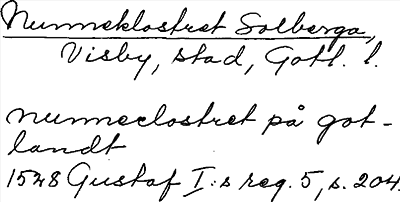 Nunneklostret Solberga,
Visby, stad, Gotl. l.
nunneclostret på got-
landt
1548 Gustaf I:s reg. 5, s. 204.